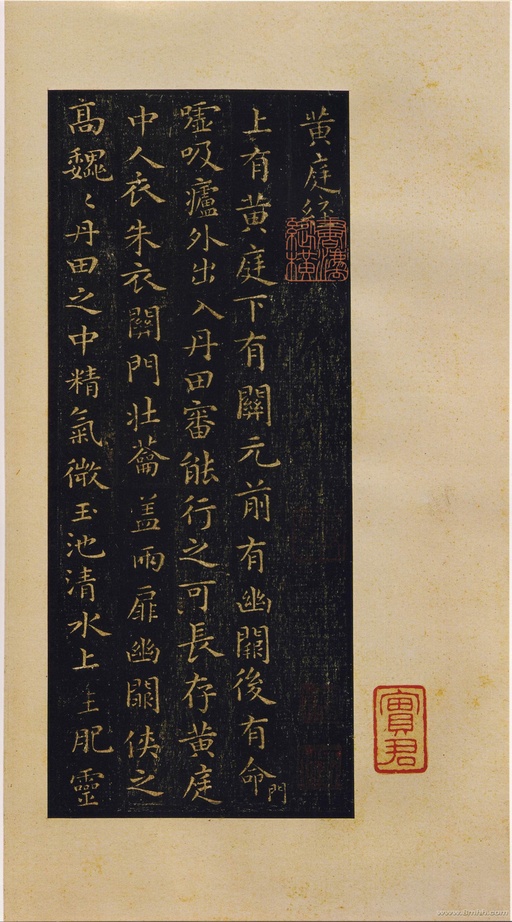 黄庭經
書灋
縱橫
上有黄庭下有關元前有幽闕後有命門
嘘吸廬外出入丹田審能行之可長存黄庭
中人衣朱衣關門壯蘥盖兩扉幽闕侠之
高巍〻丹田之中精氣微玉池清水上生肥靈
寶君
www.timhh.com